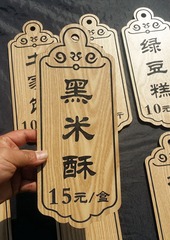 黑米酥
15元/盒
绿豆糕
10元